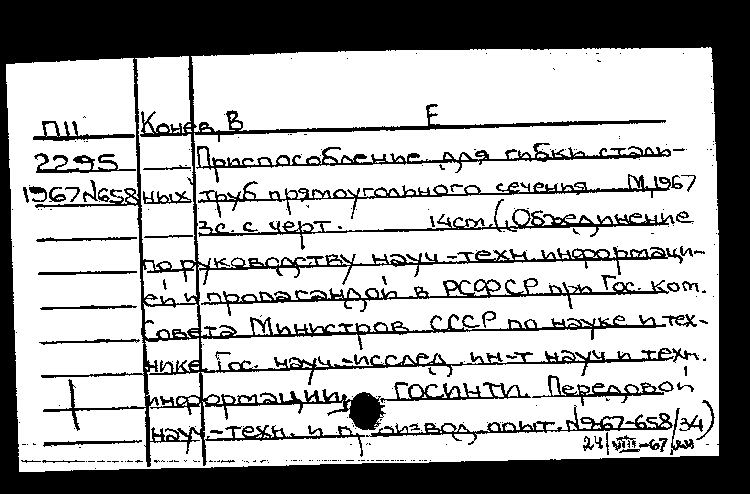 П11 Конев, В Е
2295 Приспособление для гибки сталь-
1967 №658 ных труб прямоугольного сечения М, 1967
3с. с черт. 14см. (Объединение
по руководству науч-техн. информаци-
ей и пропагандой в РСФСР при Гос. ком.
Совета Министров СССР по науке и тех-
нике. Гос. науч.-исслед. ин-т науч и техн.
информации. ГОСИНТИ. Передовой
науч-техн. и производ. опыт. №9-67-658/34)
24/VIII-67